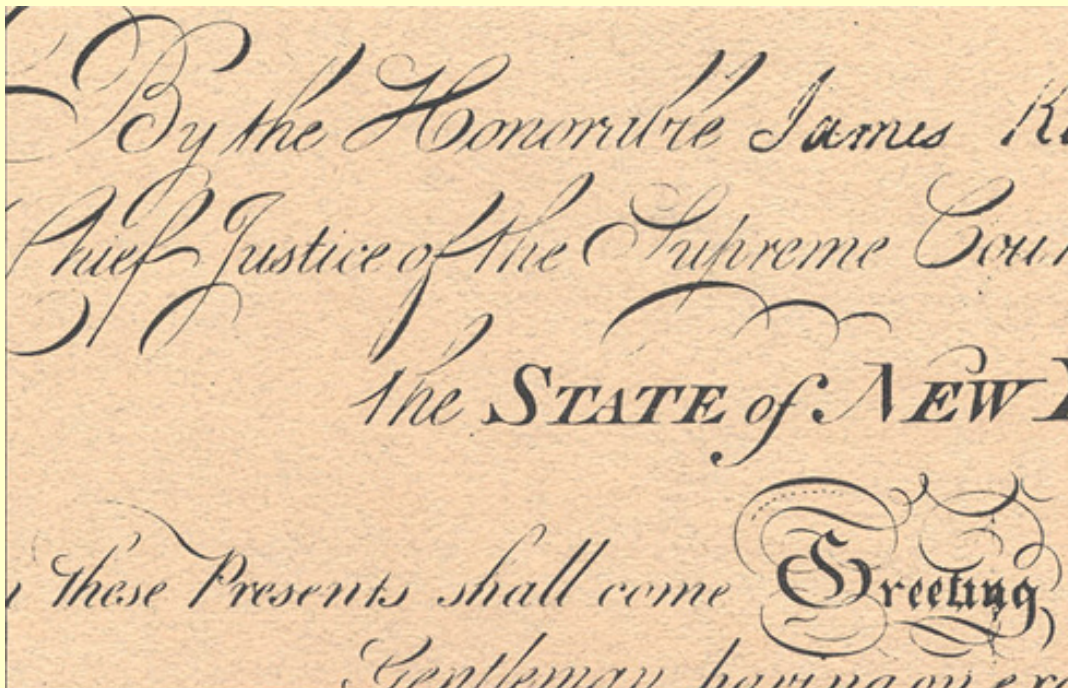 By the Honorable James
Chief Justice of the Supreme
the STATE of NEW
these Presents shall come Greeting
Gentleman having on